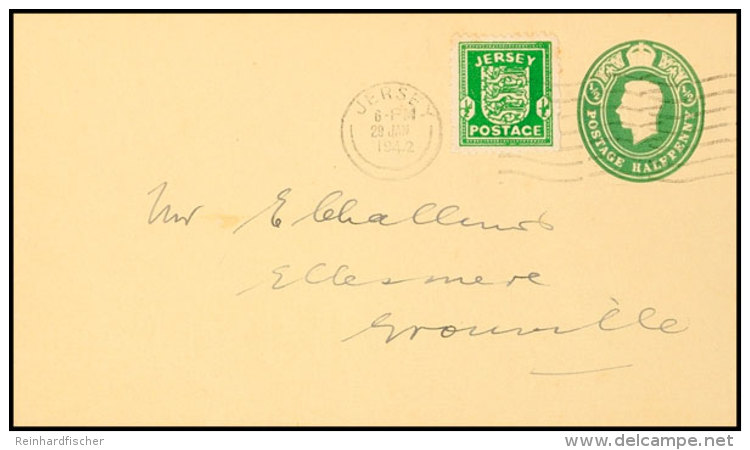 JERSEY
6-PM
29 JAN
1942
JERSEY
½ D
POSTAGE
½ D
POSTAGE HALFPENNY
Mr E
Ellesmere
Grouville
Reinhardfischer
www.delcampe.net